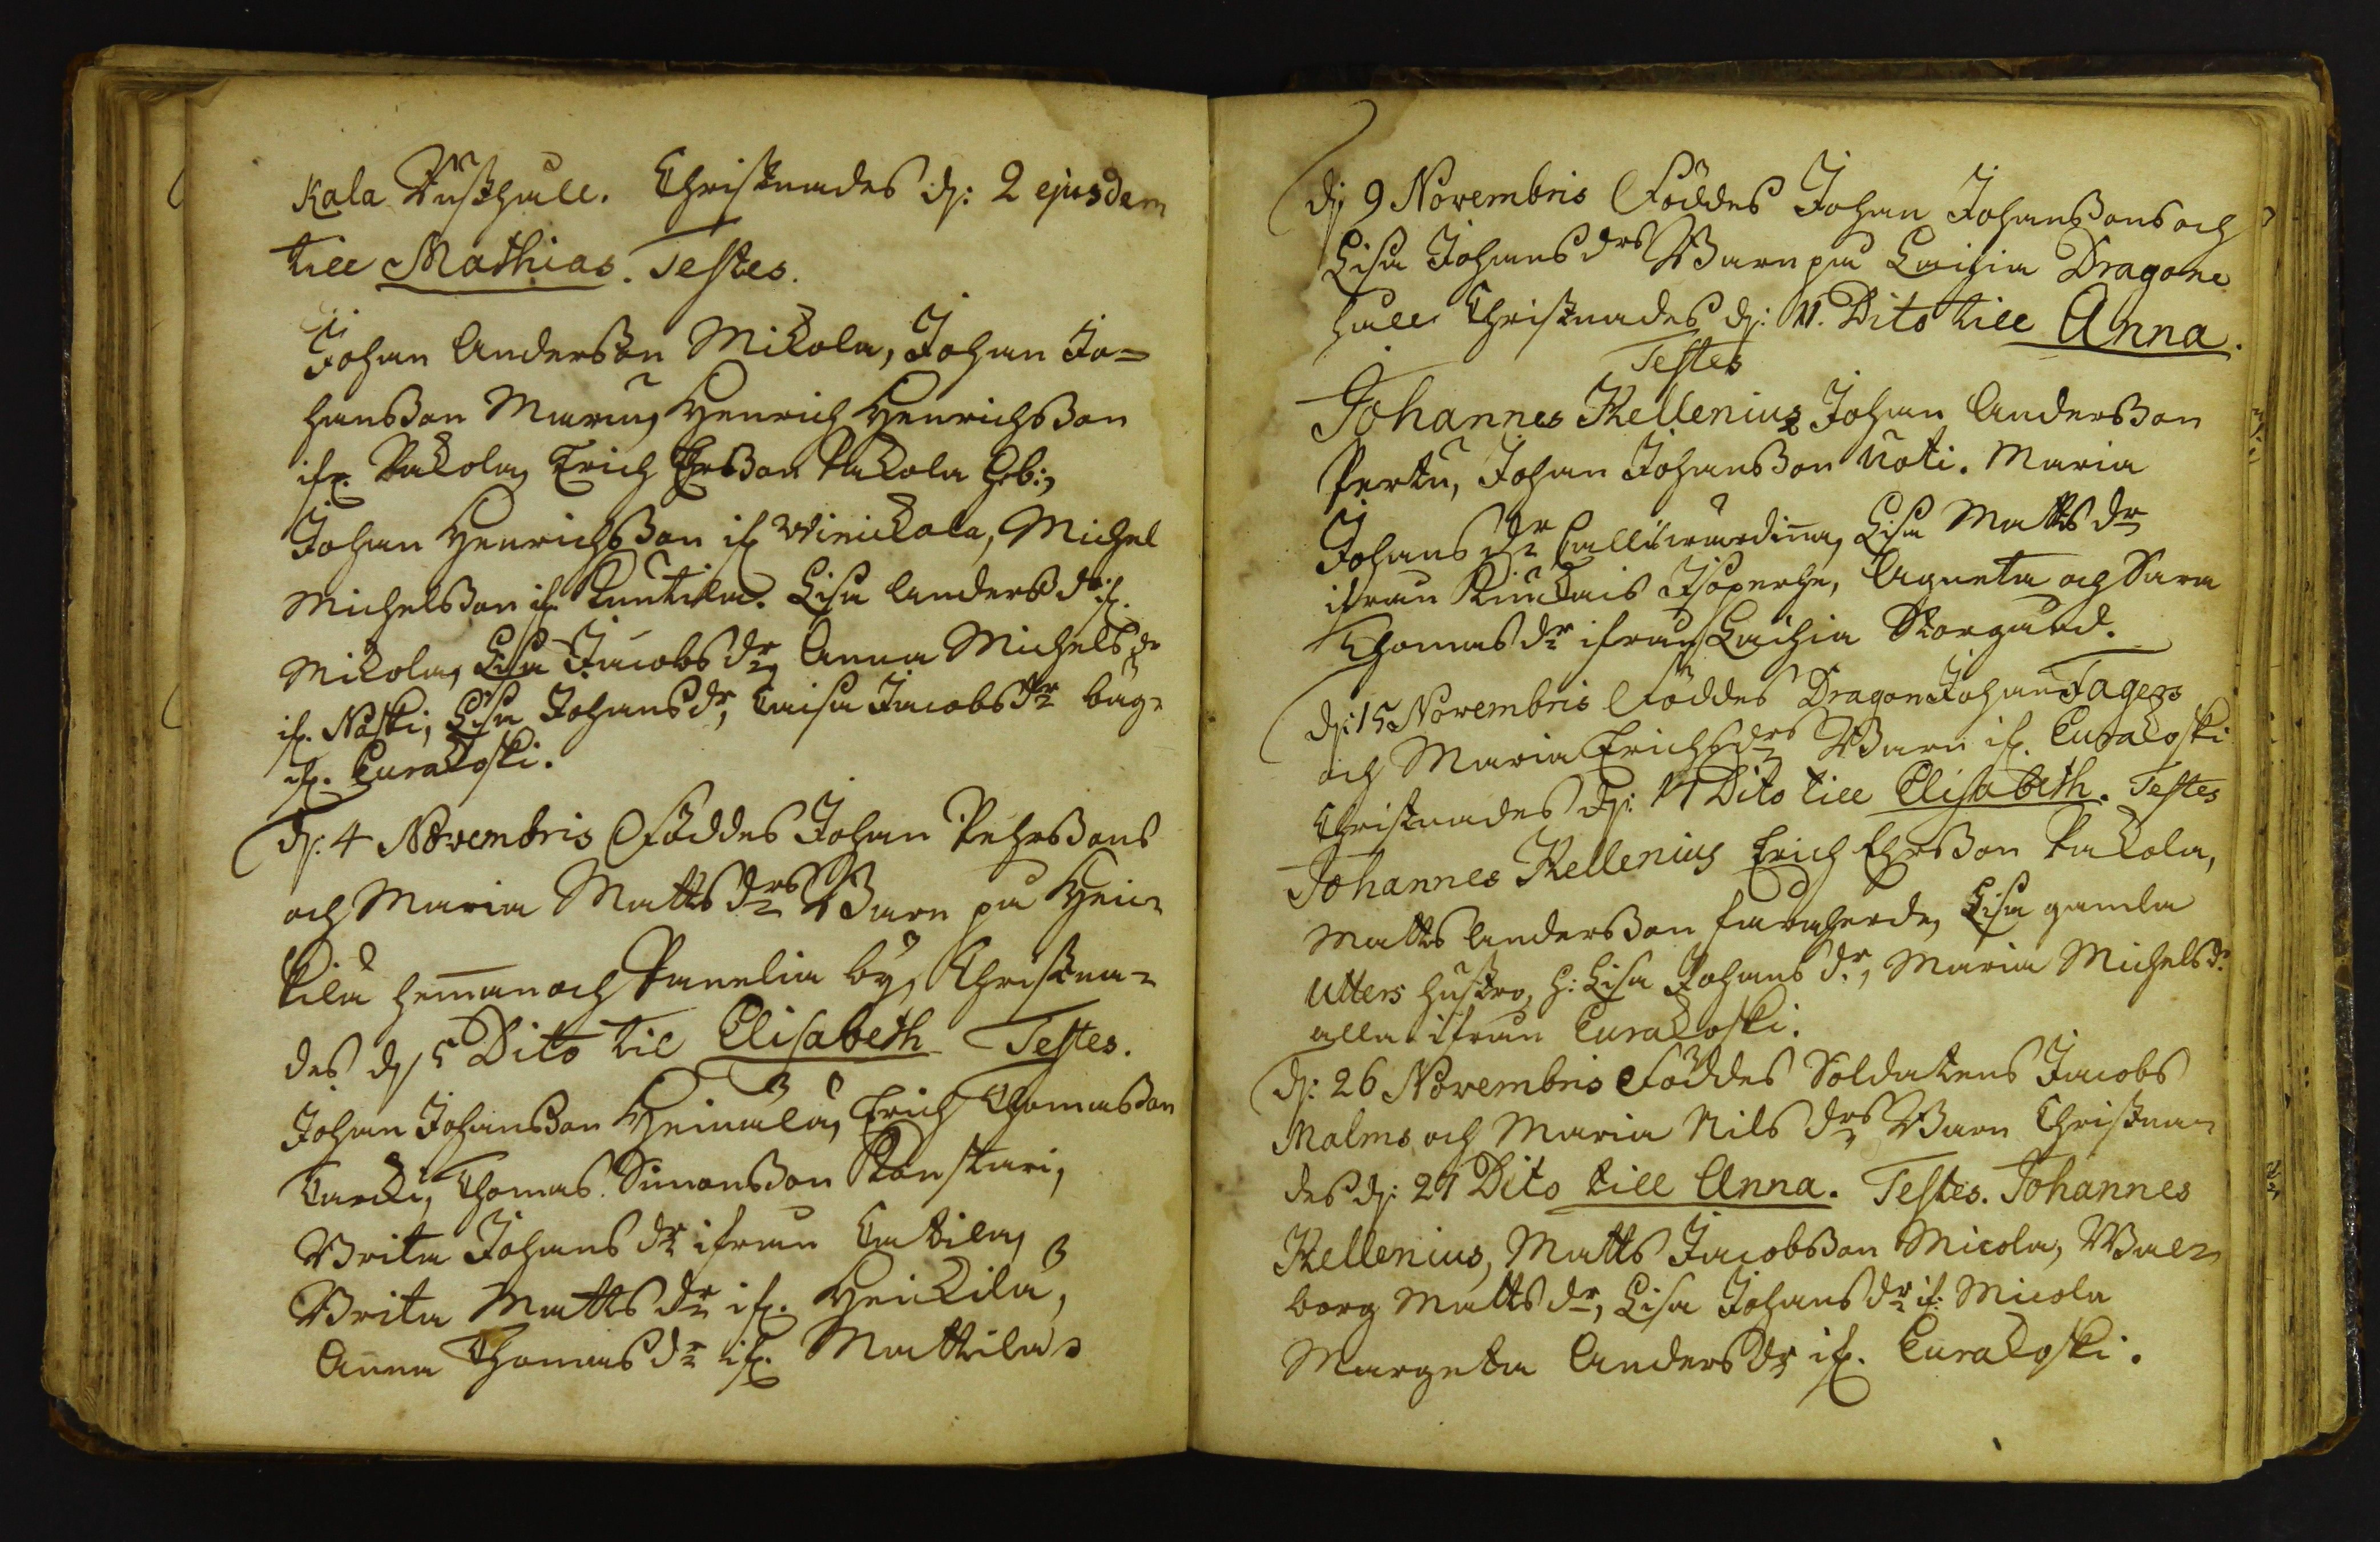 Kala Rusthåll. Christnades dj: 2 ejusdem
till Mathias. Testes.
Johan Andersson Mikola, Johan Jo=
hansson Maru, Henrich Henrichsson
ifr. Pakola, Erich Ersson Pakola
Johan Henrichsson if Winickala, Michel
Michelsson if. Kuntila. Lisa Anders dr if.
Mikola, Lisa Jacobs dr, Anna Michels dr
if. Näski, Lisa Johans dr, Caisa Jacobs dr
if. Eurakoski.
dj. 4 Novembris Föddes Johan Pehrssons
och Maria Matts drs Barn på Hei=
kilä hemman och Panelia by, Christna=
des dj 5 Dito til Elisabeth Testes.
Johan Johansson Heinälä, Erich Thomasson
Tarcki, Thomas Simonsson Konstari,
Brita Johans dr ifrån Catila,
Brita Matts dr if. Heickilä,
Anna Thomas dr if. Mattila
dj 9 Novembris Föddes Johan Johanssons och
Lisa Johans drs Barn på Laihia Dragone
håll Christnades dj: 11. Dito till Anna.
Testes
Johannes Kellenius Johan Andersson
Pertu, Johan Johansson Uoti. Maria
Johans dr Lisa Matts dr
ifrån Kiukais Isoperhe, Agneta och Sara
Thomas dr ifrån Laihia Storgård.
dj: 15 Novembris Föddes Dragon Johan Fagers
och Maria Erichs drs Barn if. Eurakoski
Christnades dj: 17 Dito till Elisabeth. Testes
Johannes Kellenius Erich Ersson Pakola,
Matts Andersson Lisa gamla
Utters hustro, h: Lisa Johans dr, Maria Michels dr
alla ifrån Eurakoski.
dj: 26 Novembris Föddes Soldatens Jacobs
Malms och Maria Nils drs Barn Christna=
des dj: 27 Dito till Anna. Testes. Johannes
Kellenius, Matts Jacobsson Micola, Wal=
borg Matts dr, Lisa Johans dr if. Micola
Margeta Anders dr if. Eurakoski.